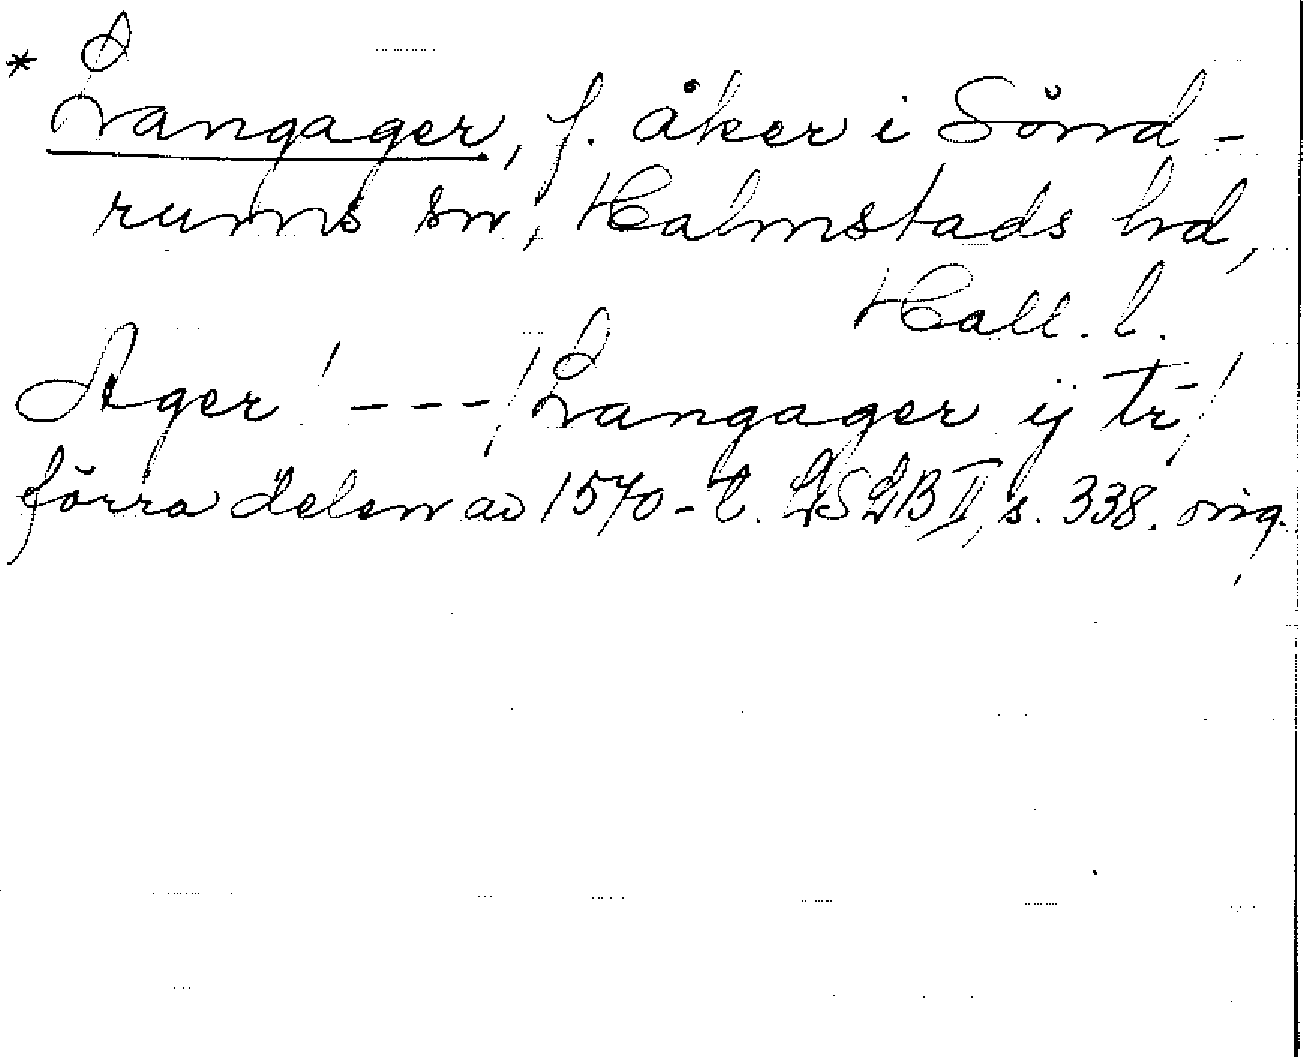 * Langager, f. åker i Sönd-
rums sn, Halmstads hd,
Hall. l.
Ager' --- / Langager ij tr /
förra delen av 1570-t. LSLB II, s. 338. orig.